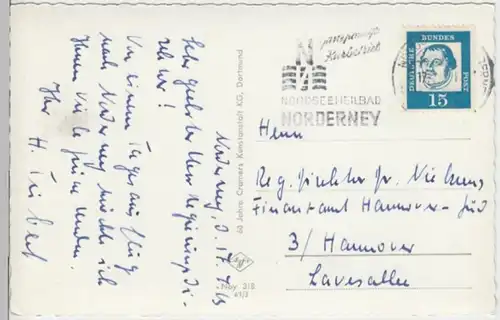 Norderney, d. 17.7.63
Sehr geehrter Herr Regierungsdi-
rektor!
Von einem Tagesausflug
nach Norderney möchte ich
Ihnen viele Grüße senden.
Ihr H.
60 Jahre Cramers Kunstanstalt KG, Dortmund
Nby 318
ganzjährige
Kurbetrieb
NORDSEEHEILBAD
NORDERNEY
DEUTSCHE
BUNDES
POST
15
Herrn
Reg. Direktor Dr.
Finanzamt Hannover-Süd
3/ Hannover
Lavesallee